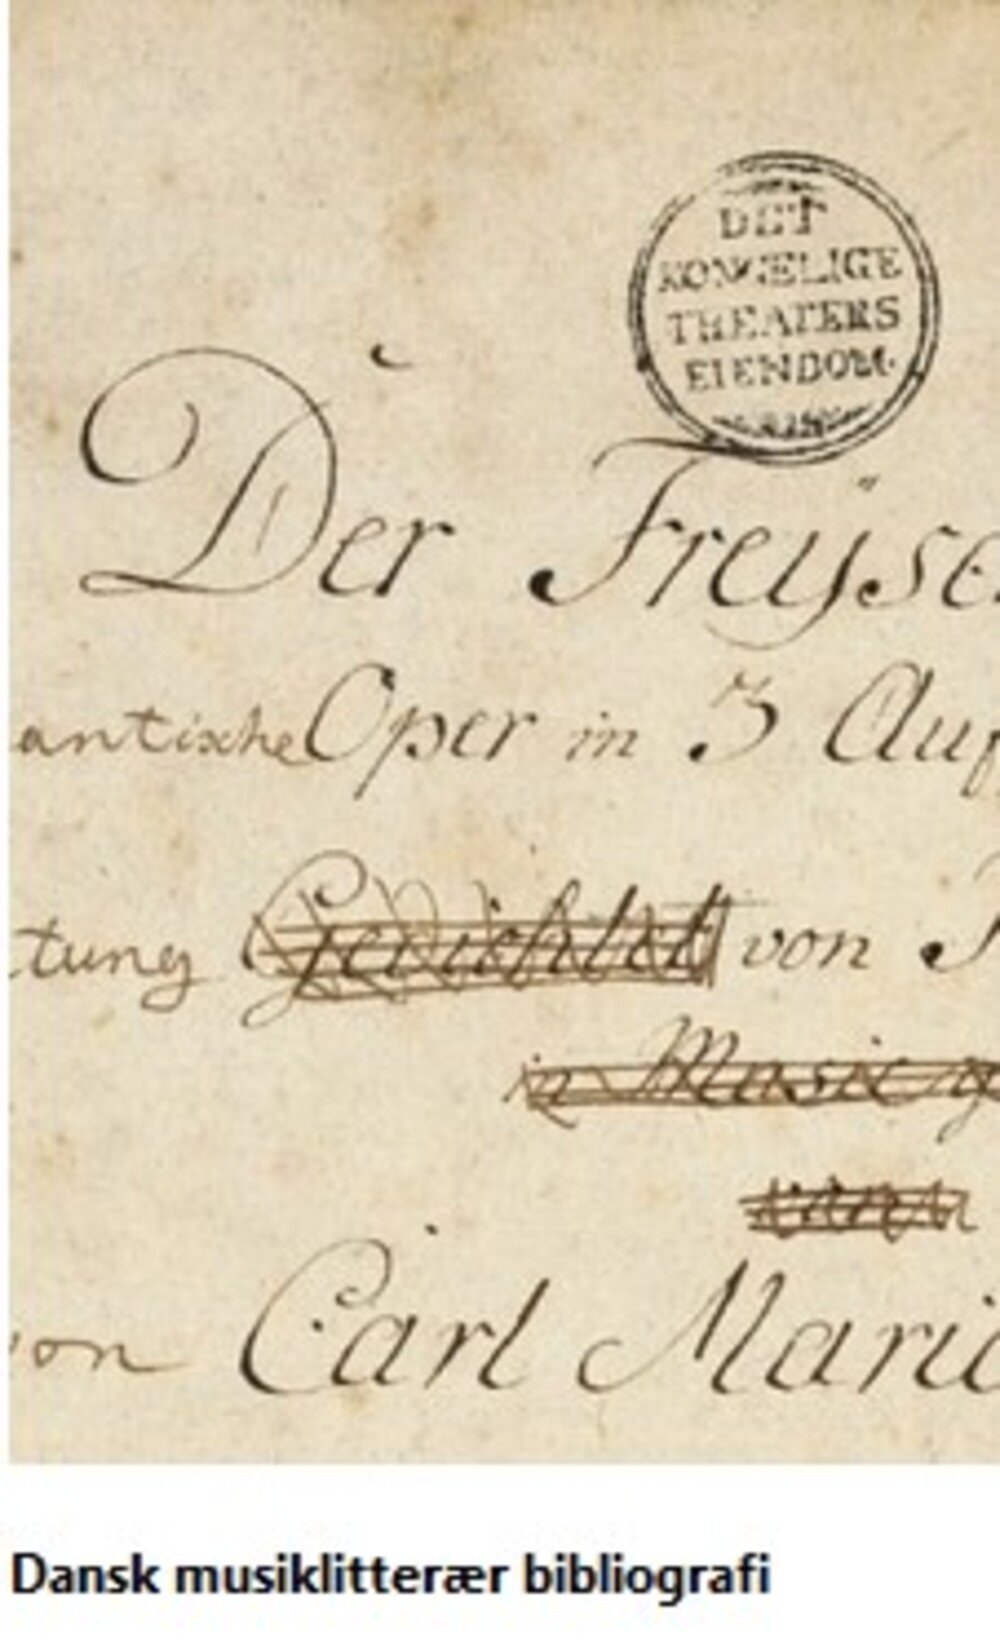 DET
KONGELIGE
THEATERS
EIENDOM.
Der Freÿsc
antische Oper in 3 Auf
tung Gedichtet von
in Music g
von Carl Maria
Dansk musiklitterær bibliografi